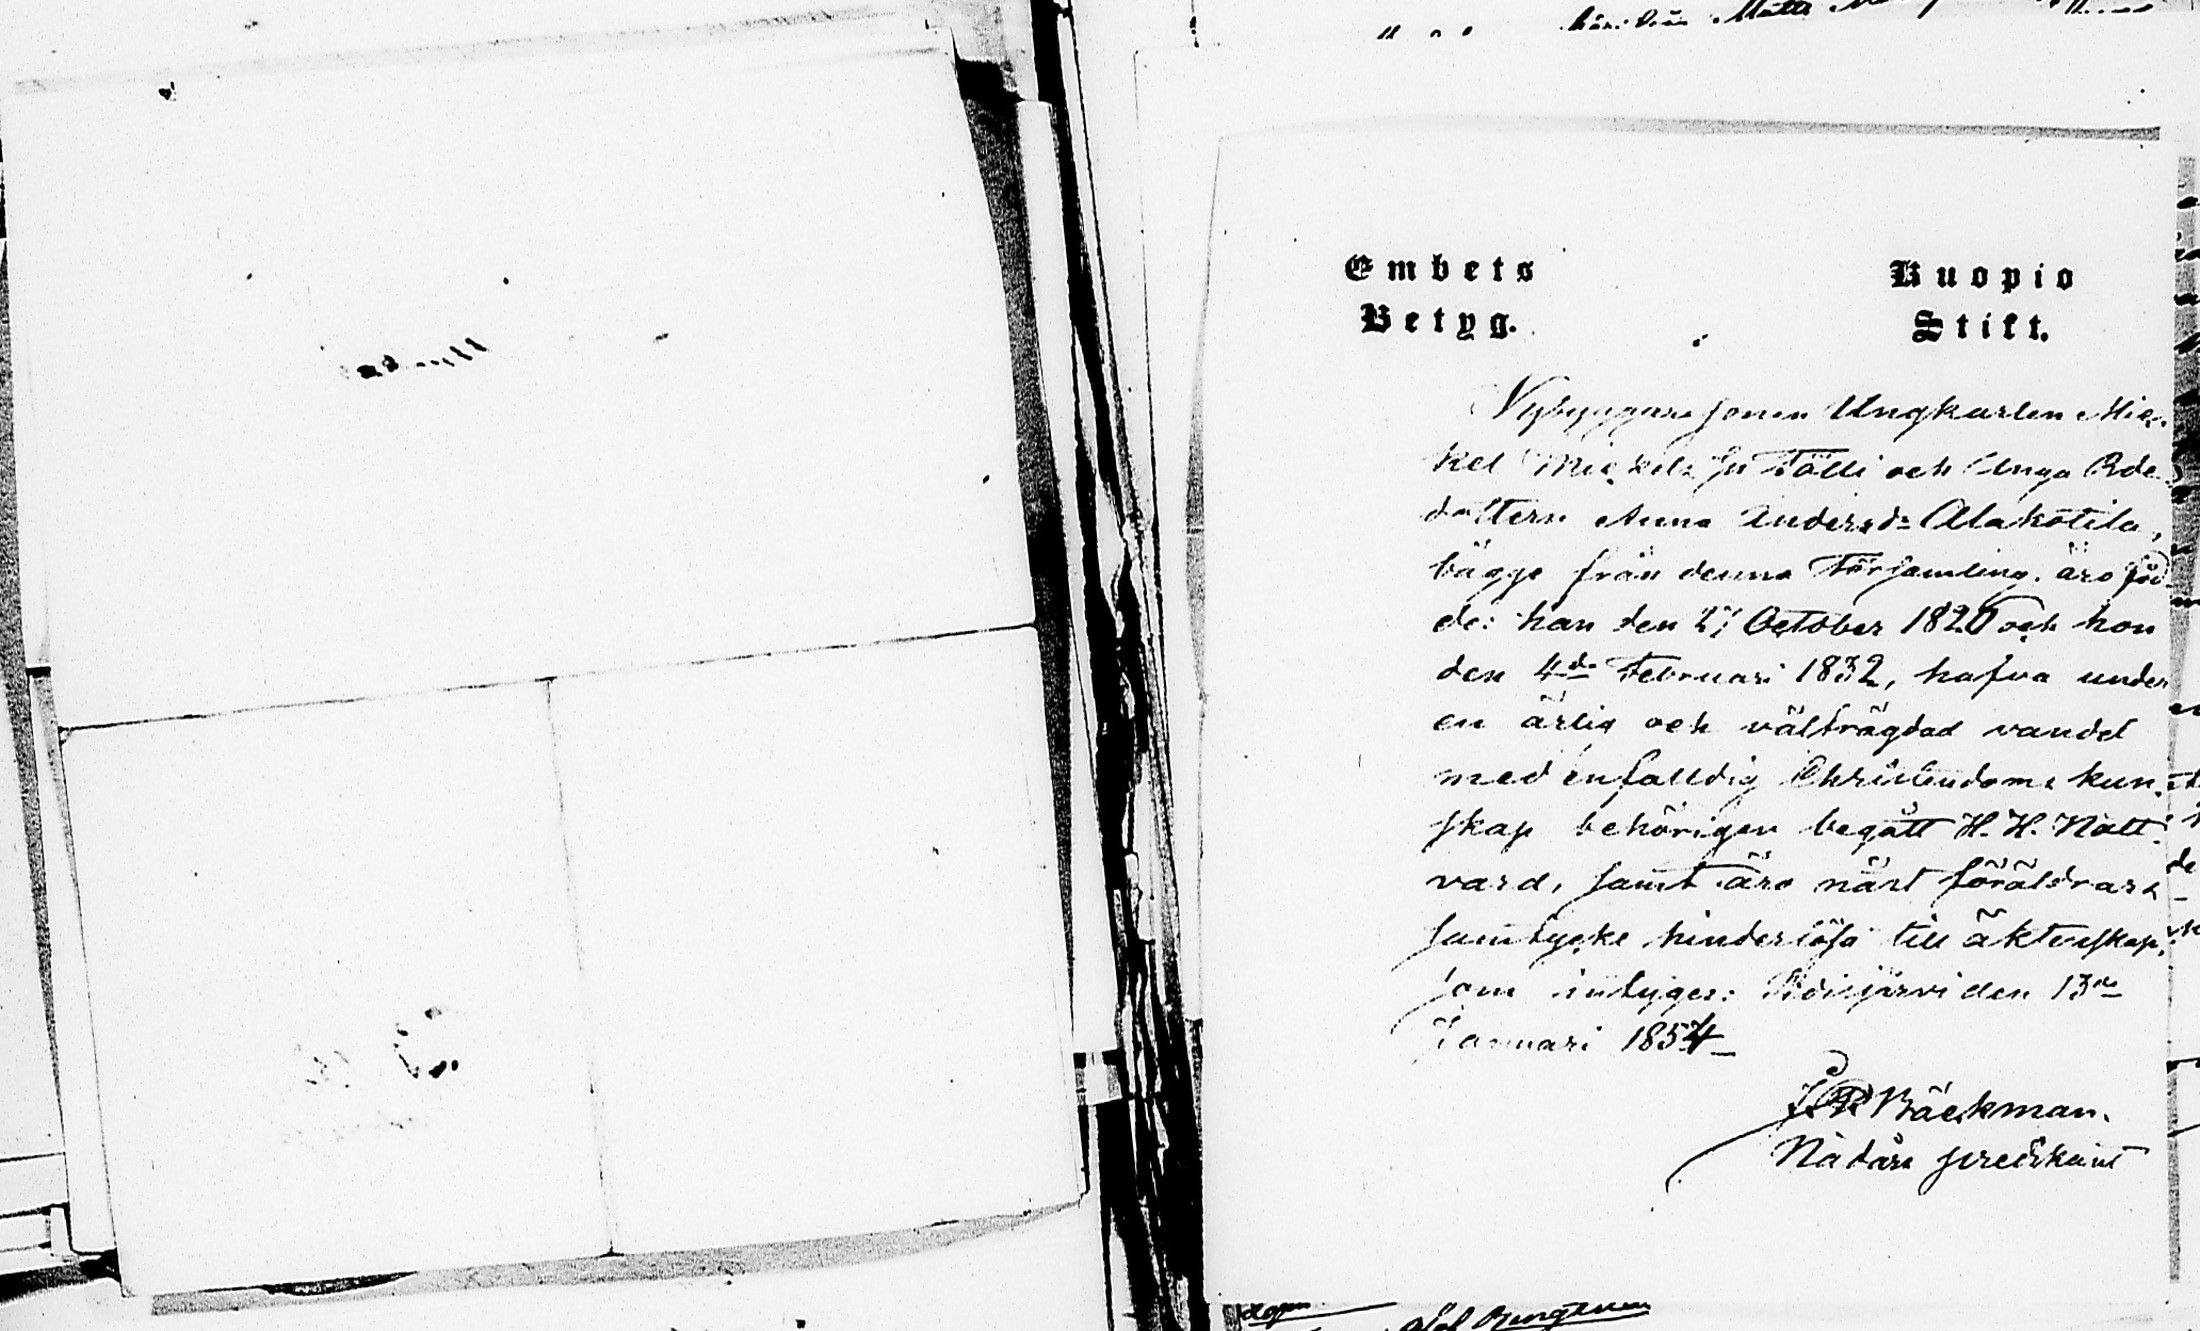 Embets Betyg.
Kuopio Stift.
Nybyggare sonen Ungkarlen Mic-
kel Mickels Sn Tölli och Unga Bde
dottern Anna Andersdr Alakotila,
bägge från denna Församling, äro föd-
de: han den 27 October 1820 och hon
den 4de Februari 1832, hafva under
en ärlig och välfrägdad vandel
med enfalldig Christendoms kun-
skap behörigen begått H. H. Natt-
vard, samt äro näst föräldrars
samtycke hinderlösa till äktenskap,
som intyges: den 13de
Januari 1854
Bäckman.
Nådårs predikant